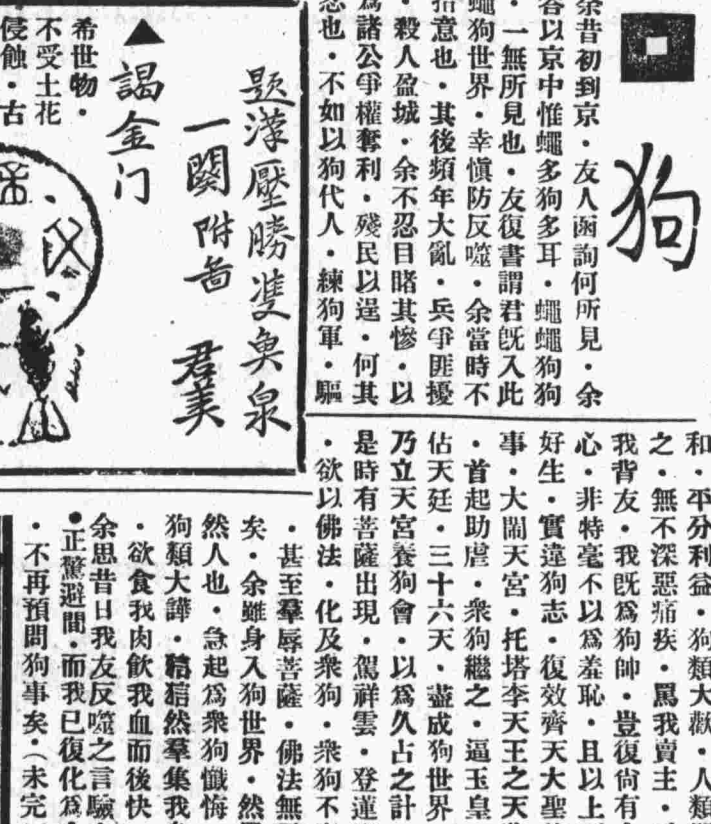 狗
余昔初到京・友人函詢何所見・余
答以京中惟蠅多狗多耳・蠅蠅狗狗
・一無所見也・友復書謂君旣入此
蠅狗世界・幸愼防反噬・余當時不
措意也・其後頻年大亂・兵爭匪擾
・殺人盈城・余不忍目睹其慘・以
爲諸公爭權奪利・殘民以逞・何其
忍也・不如以狗代人・練狗軍・驅
和・平分利益・狗類大歡・人類
之・無不深惡痛疾・罵我賣主・
我背友・我旣爲狗帥・豈復尙有
心・非特毫不以爲羞恥・且以上
好生・實違狗志・復效齊天大聖
事・大鬧天宮・托塔李天王之天
・首起助虐・衆狗繼之・逼玉皇
佔天廷・三十六天、盡成狗世界
乃立天宮養狗會・以爲久占之計
是時有菩薩出現・駕祥雲・登蓮
・欲以佛法・化及衆狗・衆狗不
・甚至羣辱菩薩・佛法無
矣・余雖身入狗世界・然
然人也・急起爲衆狗懺悔
狗類大譁・狺狺然羣集我
・欲食我肉飮我血而後快
余思昔日我友反噬之言驗
●正驚避間・而我已復化爲
・不再預問狗事矣・(未完
題漢壓勝雙魚泉
一闋附啚 君美
▲謁金门
希世物・
不受土花
侵蝕・古